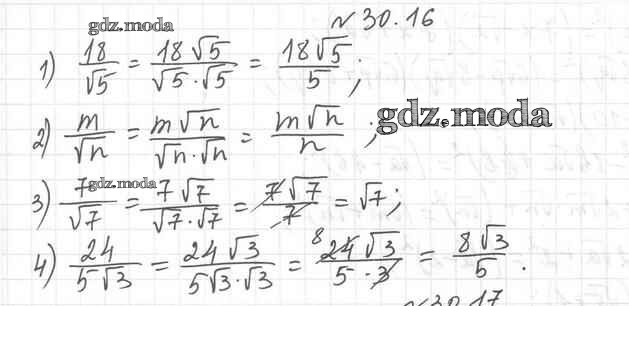 gdz.moda
№30.16
1) 18/√5 = 18√5/(√5·√5) = 18√5/5;
gdz.moda
2) m/√n = m√n/(√n·√n) = m√n/n;
gdz.moda
3) 7/√7 = 7√7/(√7·√7) = 7√7/7 = √7;
4) 24/(5√3) = 24√3/(5√3·√3) = 8 24√3/(5·3) = 8√3/5.
№30.17